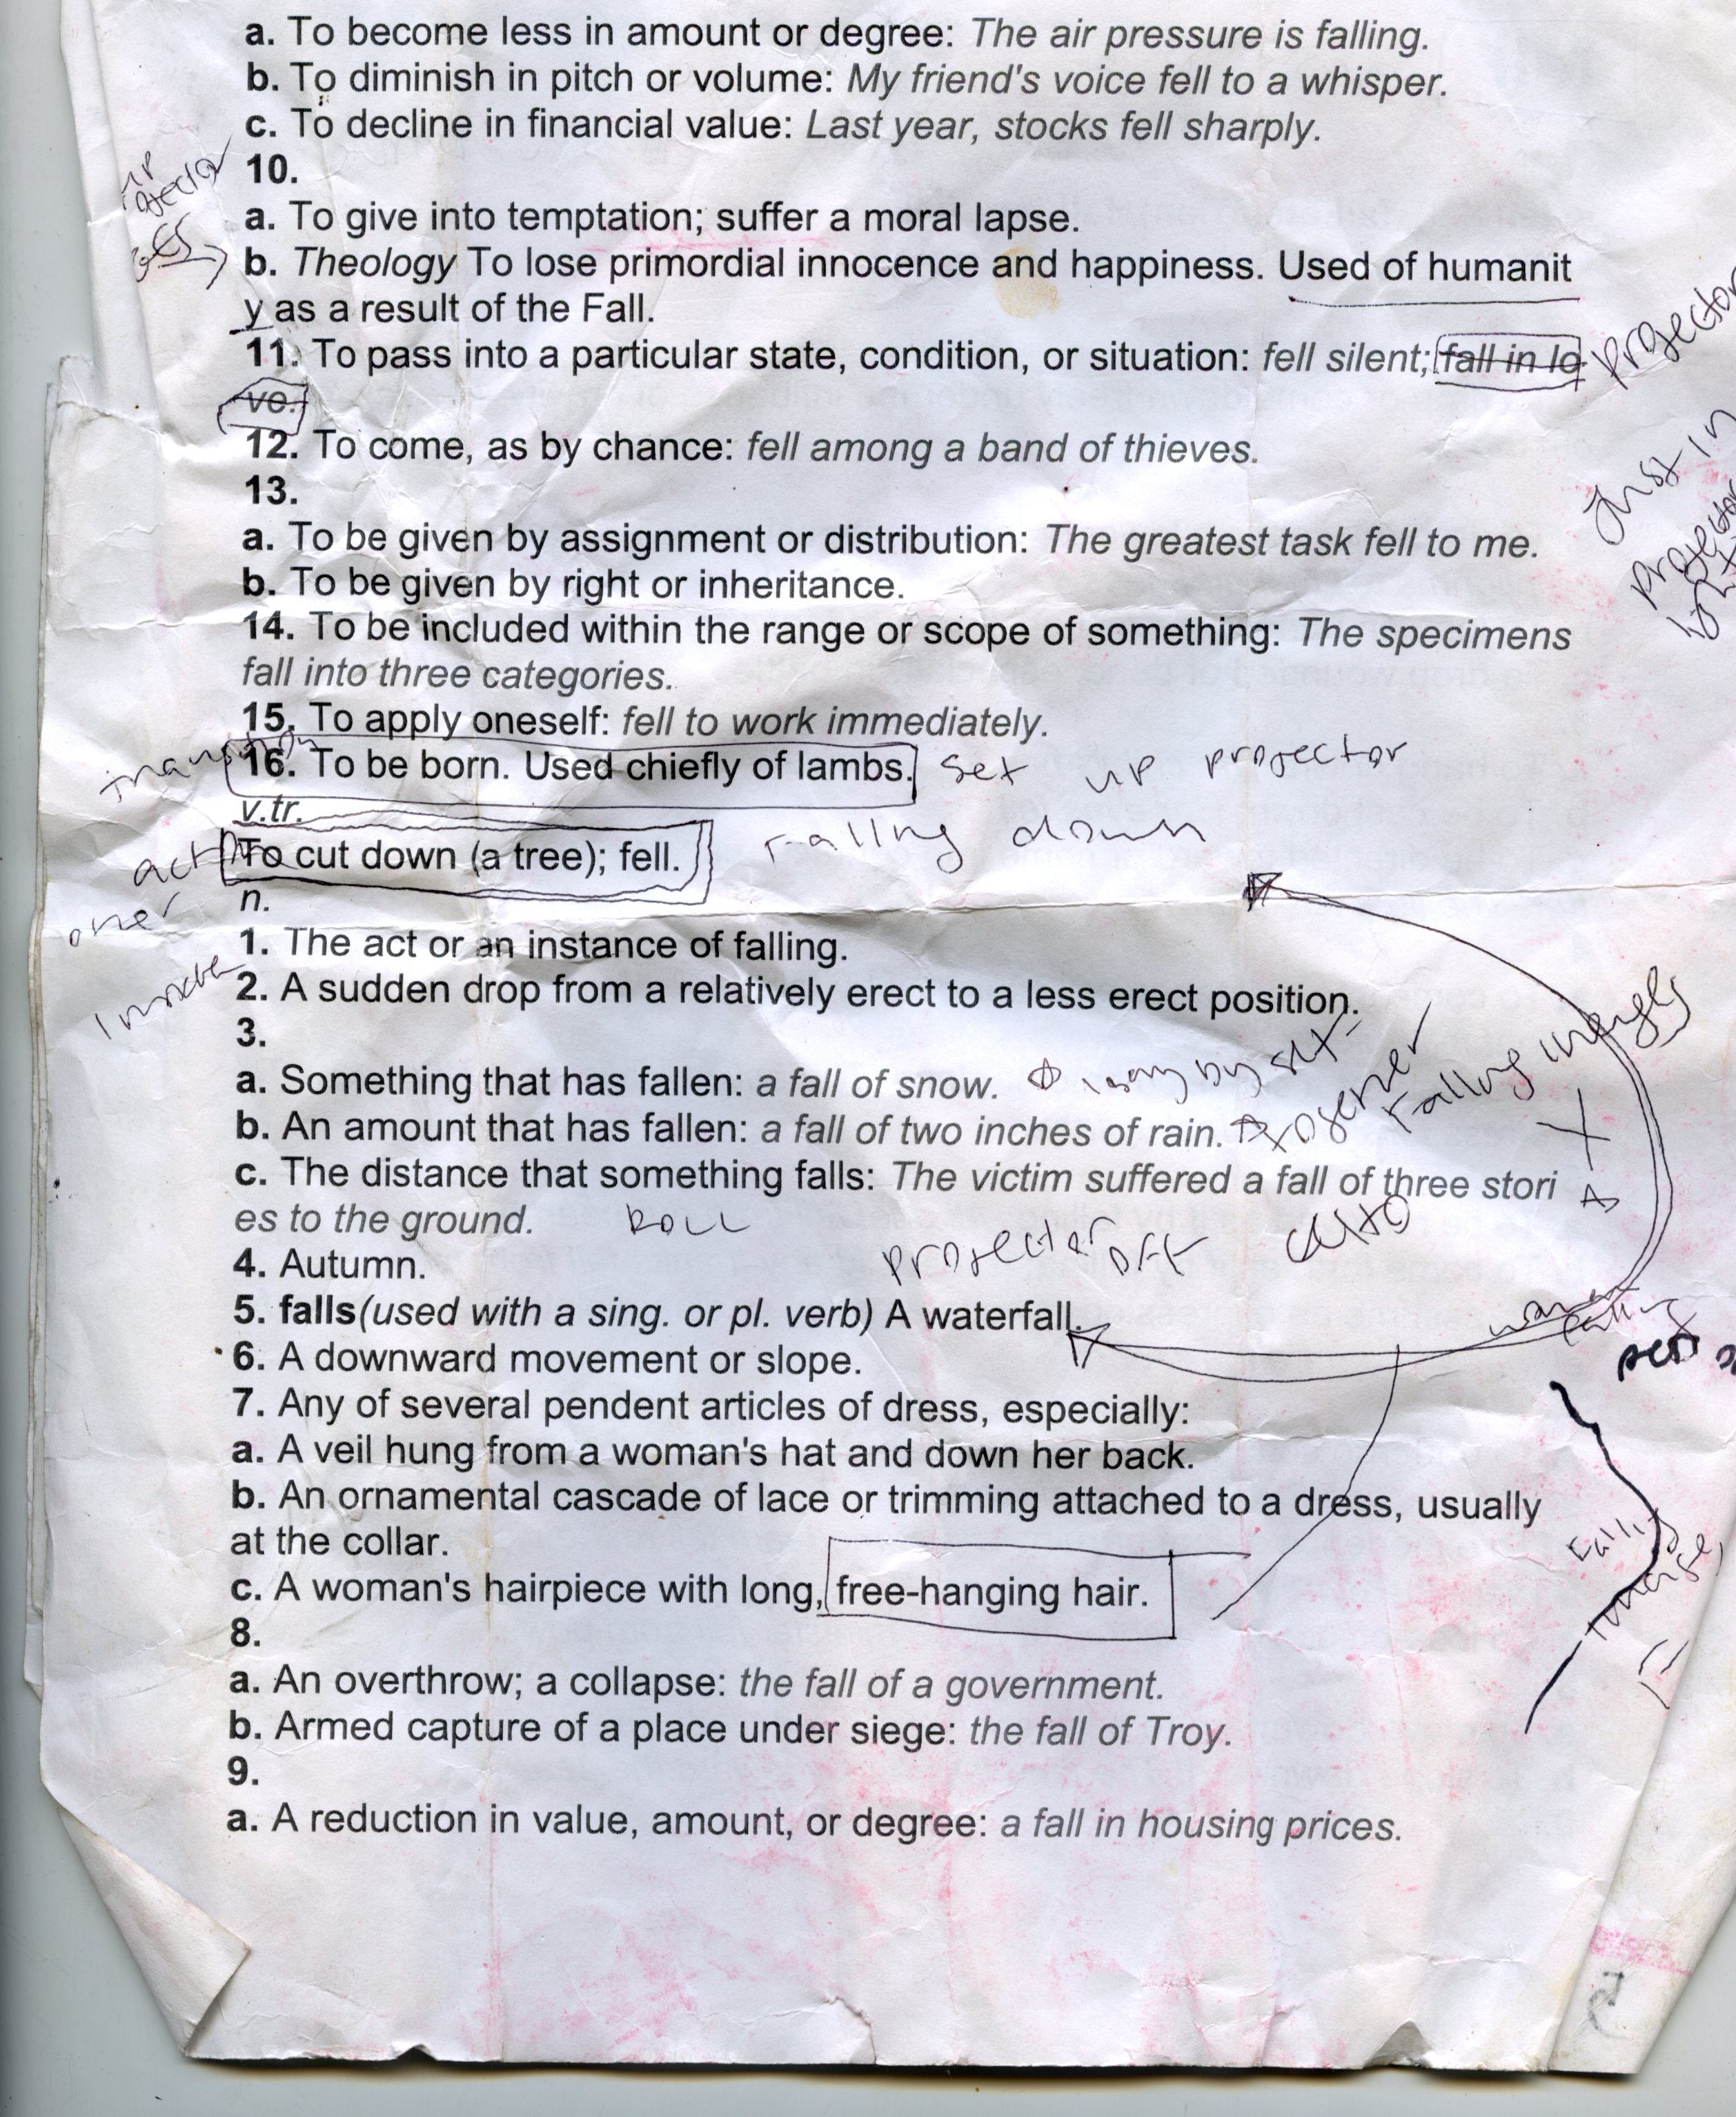 a. To become less in amount or degree: The air pressure is falling.
b. To diminish in pitch or volume: My friend's voice fell to a whisper.
c. To decline in financial value: Last year, stocks fell sharply.
10.
a. To give into temptation; suffer a moral lapse.
b. Theology To lose primordial innocence and happiness. Used of humanit
y as a result of the Fall.
11. To pass into a particular state, condition, or situation: fell silent; fall in lo
ve.
projector
12. To come, as by chance: fell among a band of thieves.
13.
Just in
projector
a. To be given by assignment or distribution: The greatest task fell to me.
b. To be given by right or inheritance.
14. To be included within the range or scope of something: The specimens
fall into three categories.
15. To apply oneself: fell to work immediately.
16. To be born. Used chiefly of lambs. set up projector
v.tr.
To cut down (a tree); fell. Falling down
n.
1. The act or an instance of falling.
2. A sudden drop from a relatively erect to a less erect position.
3.
a. Something that has fallen: a fall of snow.
b. An amount that has fallen: a fall of two inches of rain.
Falling
c. The distance that something falls: The victim suffered a fall of three stori
es to the ground. ROLL
projector off
4. Autumn.
5. falls(used with a sing. or pl. verb) A waterfall.
6. A downward movement or slope.
7. Any of several pendent articles of dress, especially:
a. A veil hung from a woman's hat and down her back.
b. An ornamental cascade of lace or trimming attached to a dress, usually
at the collar.
c. A woman's hairpiece with long, free-hanging hair.
image
8.
a. An overthrow; a collapse: the fall of a government.
b. Armed capture of a place under siege: the fall of Troy.
9.
a. A reduction in value, amount, or degree: a fall in housing prices.